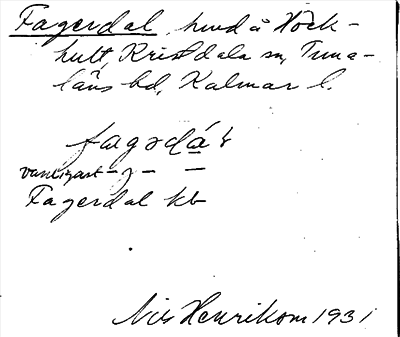 Fagerdal, hmd å Hock-
hult, Kristdala sn, Tuna-
läns hd, Kalmar l.
fagədá̱ɫ
vanligast – ȝ – –
Fagerdal kb
Nils Henrikson 1931